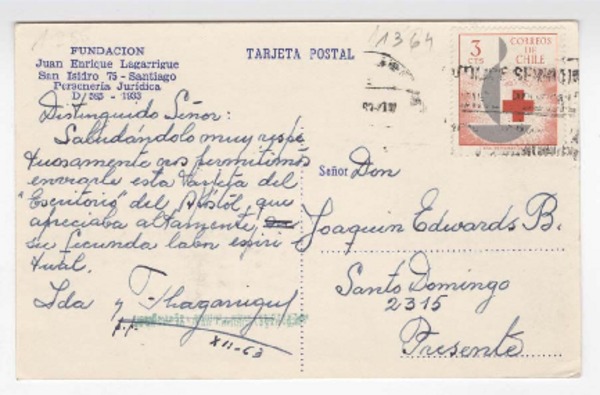 FUNDACION
Juan Enrique Lagarrigue
San Isidro 75 - Santiago
Personería Jurídica
D/ 585 - 1933
TARJETA POSTAL
1364
3
CTS
CORREOS
DE
CHILE
Distinguido Señor:
Saludándolo muy respe
tuosamente nos permitimos
enviarle esta tarjeta del
"Escritorio" del Apóstol, que
apreciaba altamente,
su fecunda labor espiri
tual.
Ida y
Lagarrigue
XII-63
Señor Don
Joaquin Edwards B.
Santo Domingo
2315
Presente